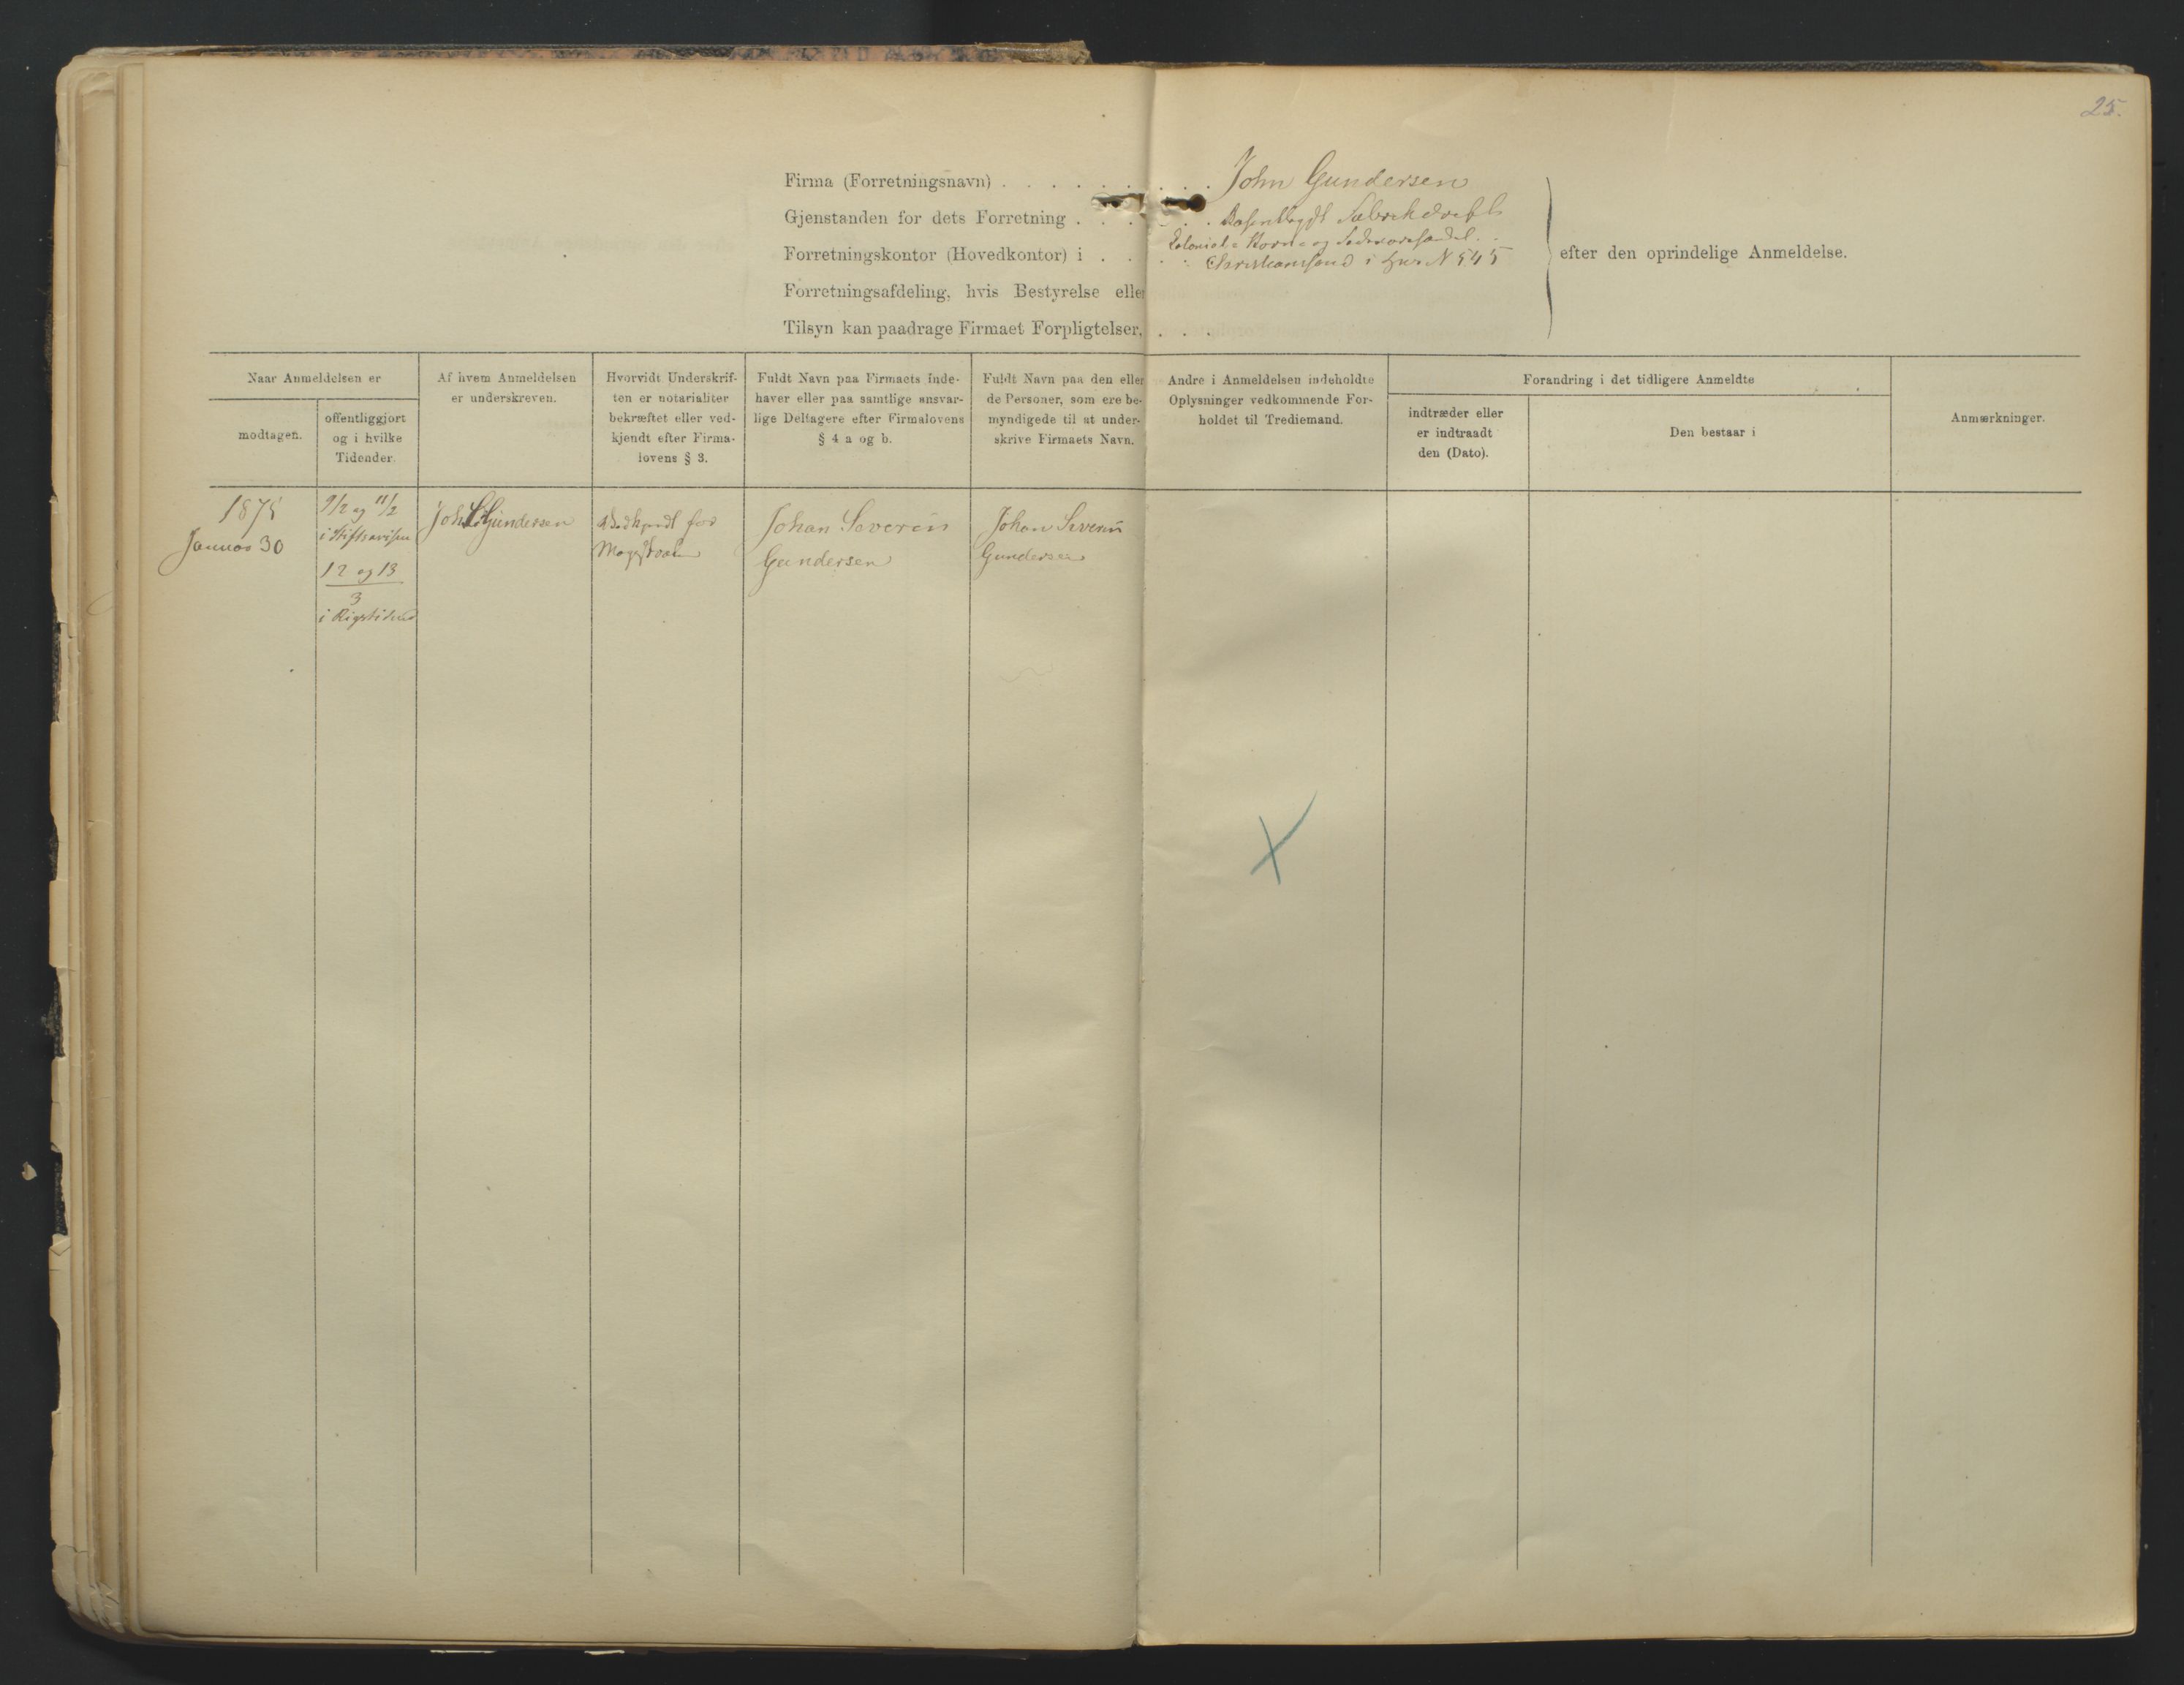 25.
Firma (Forretningsnavn) . . . . . . . . . John Gundersen
Gjenstanden for dets Forretning . . . . . Fabrikdrift
Kolonial- Korn- og
Forretningskontor (Hovedkontor) i . . . . . Christianssand i Hus N 545
Forretningsafdeling, hvis Bestyrelse eller
Tilsyn kan paadrage Firmaet Forpligtelser, . . .
efter den oprindelige Anmeldelse.
Naar Anmeldelsen er
modtagen.
offentliggjort
og i hvilke
Tidender.
Af hvem Anmeldelsen
er underskreven.
Hvorvidt Underskrif-
ten er notarialiter
bekræftet eller ved-
kjendt efter Firma-
lovens § 3.
Fuldt Navn paa Firmaets Inde-
haver eller paa samtlige ansvar-
lige Deltagere efter Firmalovens
§ 4 a og b.
Fuldt Navn paa den eller
de Personer, som ere be-
myndigede til at under-
skrive Firmaets Navn.
Andre i Anmeldelsen indeholdte
Oplysninger vedkommende For-
holdet til Trediemand.
Forandring i det tidligere Anmeldte
indtræder eller
er indtraadt
den (Dato).
Den bestaar i
Anmærkninger.
1875
Januar 30
9/2 og 11/2
i Stiftsavisen
12 og 13
3
i Rigstidend
Joh S Gundersen
Vedkjendt for
Magistraten
Johan Severin
Gundersen
Johan Severin
Gundersen